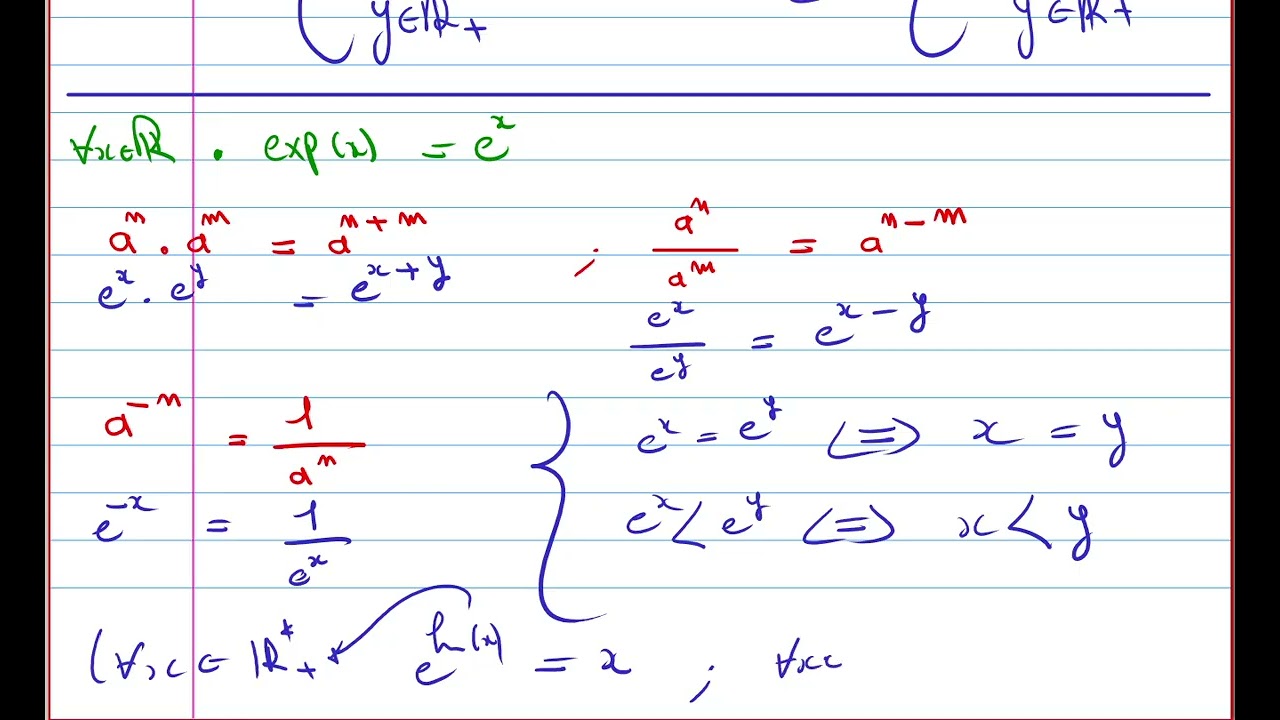 y∈ℝ₊ y∈ℝ₊
∀x∈ℝ . exp(x) = eˣ
aⁿ . aᵐ = aⁿ⁺ᵐ ; aⁿ/aᵐ = aⁿ⁻ᵐ
eˣ . e^y = e^(x+y)
eˣ/e^y = e^(x-y)
a⁻ⁿ = 1/aⁿ
eˣ = e^y <=> x = y
e⁻ˣ = 1/eˣ
eˣ < e^y <=> x < y
(∀x∈ℝ*₊ e^ln(x) = x ; ∀x